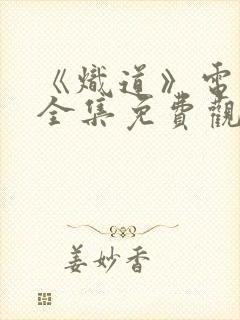 《熾道》電
全集免費觀
姜妙香